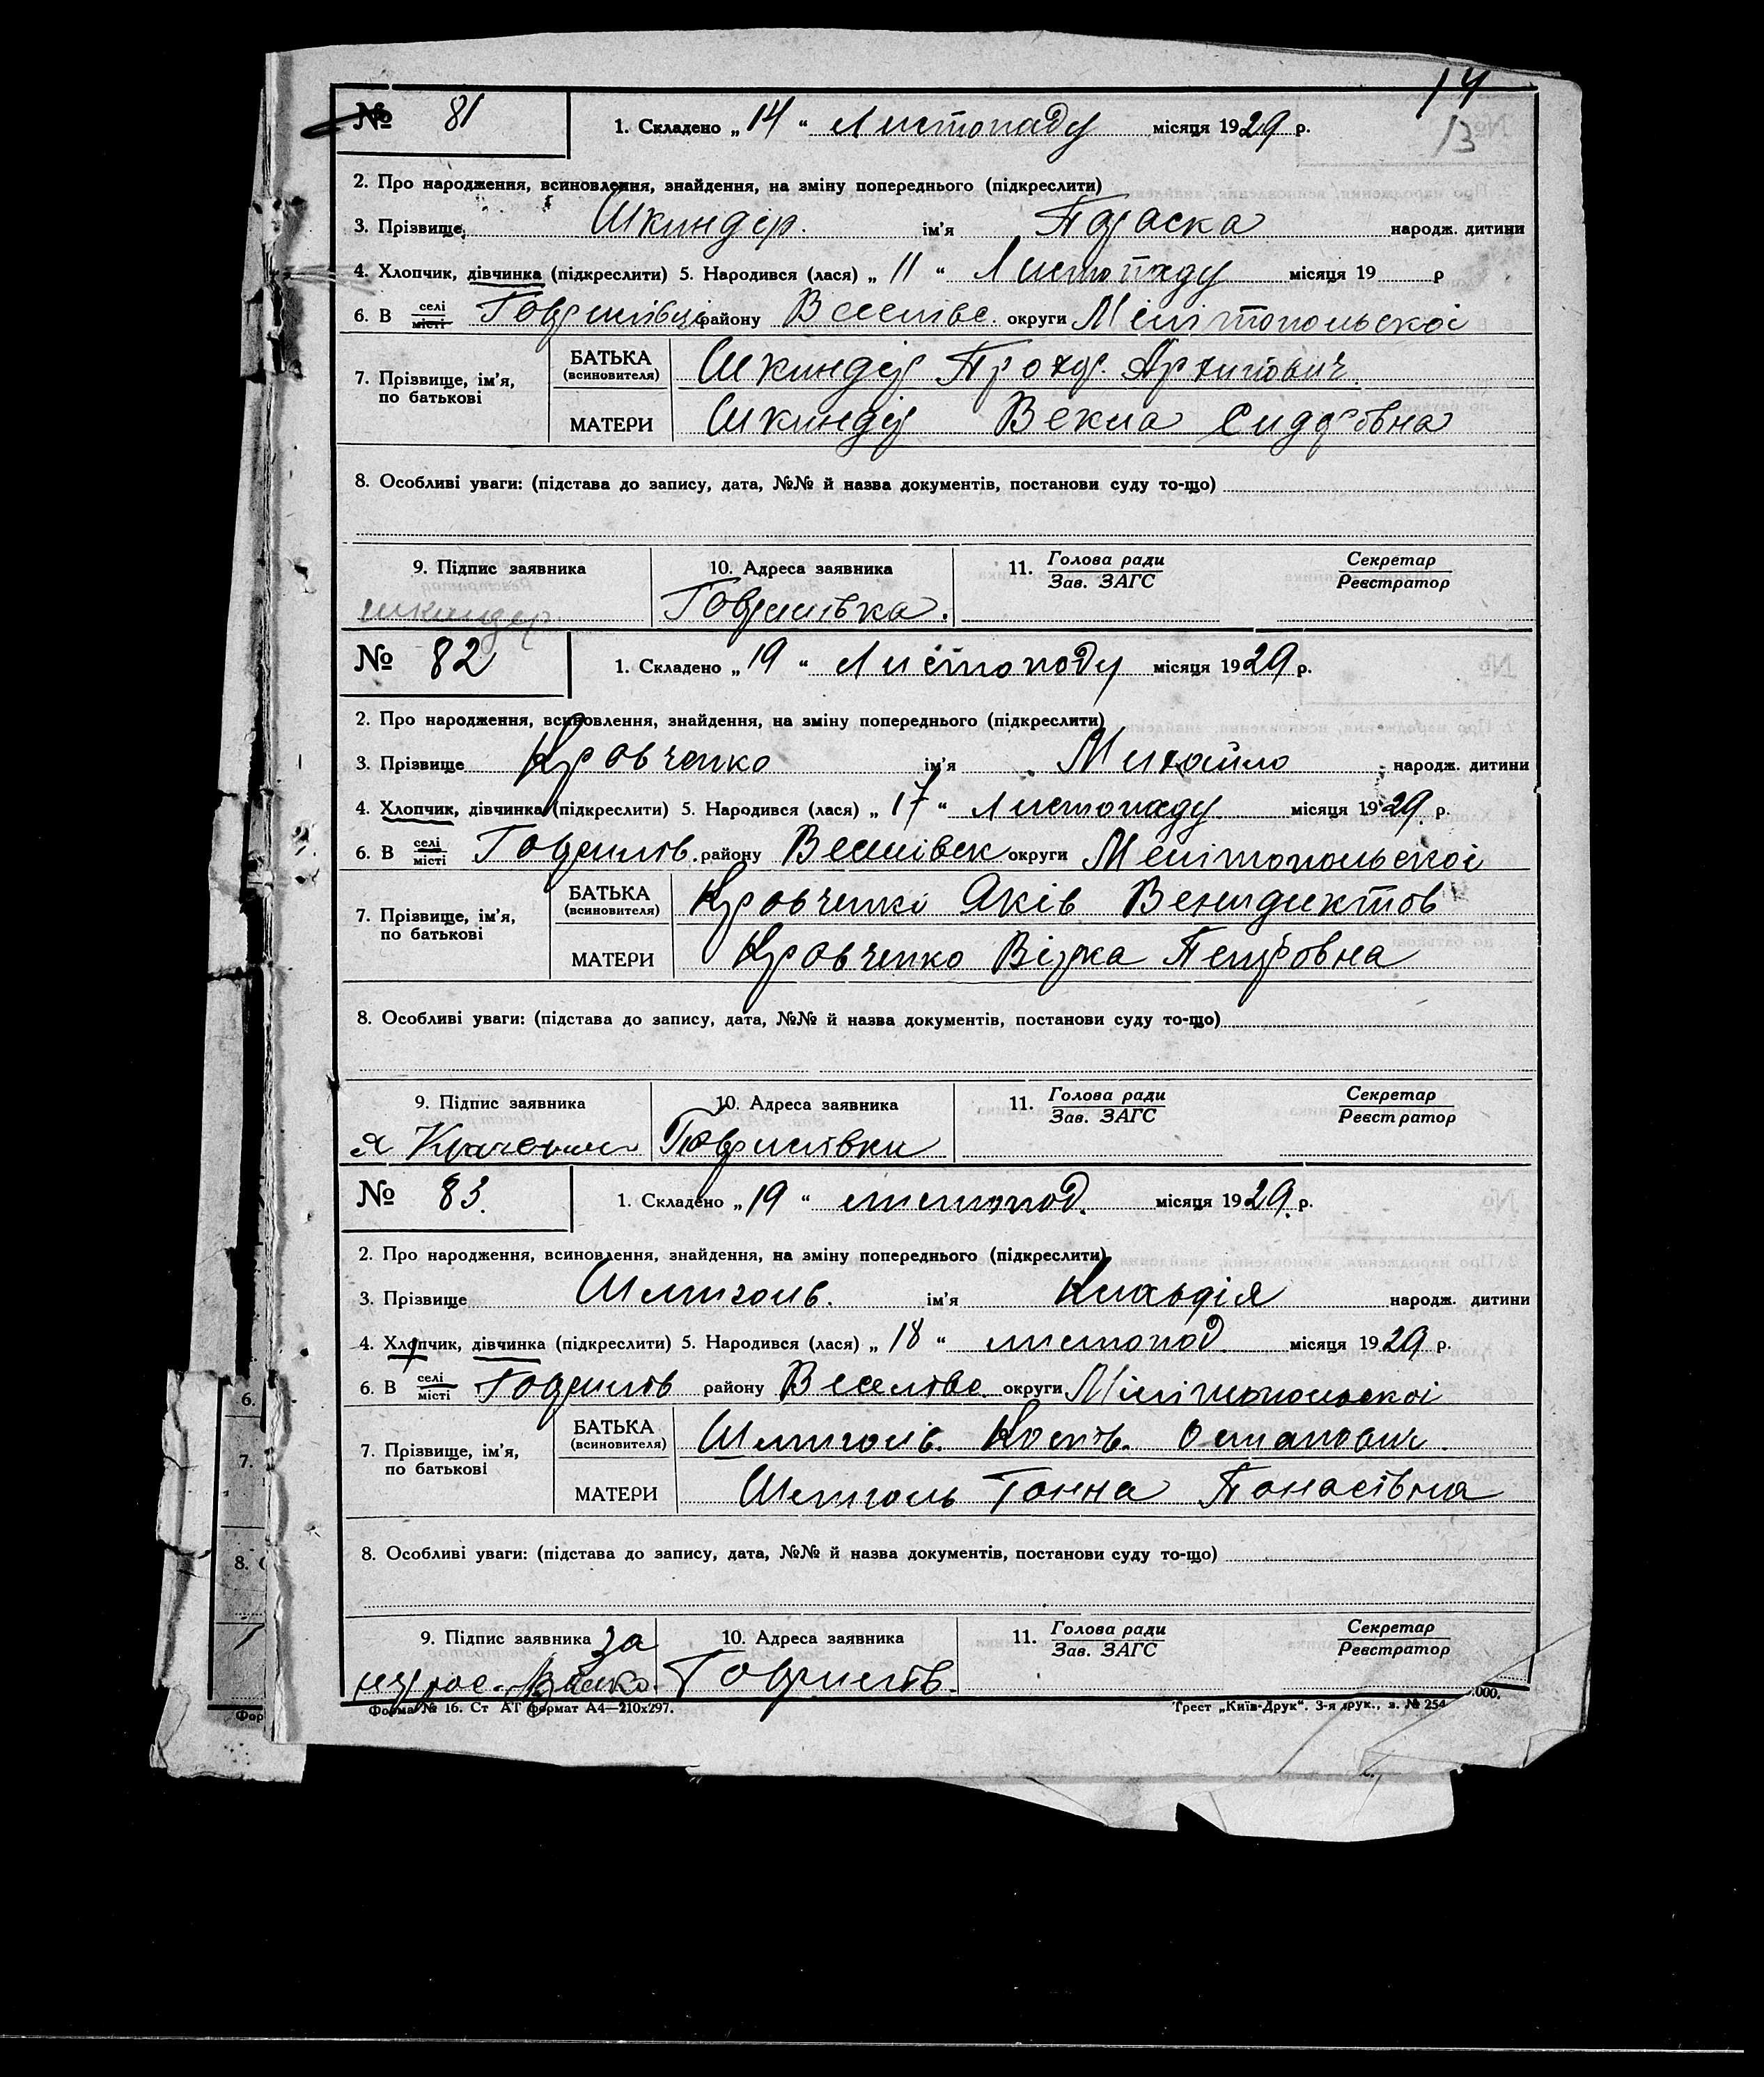 14
13
№ 81
1. Складено „14“ Листопаду місяця 1929 р.
2. Про народження, всиновлення, знайдення, на зміну попереднього (підкреслити)
3. Прізвище Шкиндер. ім'я Параска народж. дитини
4. Хлопчик, дівчинка (підкреслити) 5. Народився (лася) „11“ Листопаду місяця 19 р
6. В селі місті Гаврилівці району Веселівс. округи Мелітопольскоі
7. Прізвище, ім'я, по батькові
БАТЬКА (всиновителя) Шкиндер Прохор. Архипович.
МАТЕРИ Шкиндер Векла Сидоровна
8. Особливі уваги: (підстава до запису, дата, №№ й назва документів, постанови суду то-що)
9. Підпис заявника 10. Адреса заявника 11. Голова ради Зав. ЗАГС Секретар Реєстратор
шкиндер Гаврилівка.
№ 82
1. Складено „19“ Листопаду місяця 1929 р.
2. Про народження, всиновлення, знайдення, на зміну попереднього (підкреслити)
3. Прізвище Кравченко ім'я Михайло народж. дитини
4. Хлопчик, дівчинка (підкреслити) 5. Народився (лася) „17“ Листопаду місяця 1929. р.
6. В селі місті Гаврилів. району Веселівск округи Мелітопольскоі
7. Прізвище, ім'я, по батькові
БАТЬКА (всиновителя) Кравченко Яків Венидиктов
МАТЕРИ Кравченко Вірка Петровна
8. Особливі уваги: (підстава до запису, дата, №№ й назва документів, постанови суду то-що)
9. Підпис заявника 10. Адреса заявника 11. Голова ради Зав. ЗАГС Секретар Реєстратор
я Гаврилівки
№ 83.
1. Складено „19“ листопад. місяця 1929. р.
2. Про народження, всиновлення, знайдення, на зміну попереднього (підкреслити)
3. Прізвище ім'я Клавдія народж. дитини
4. Хлопчик, дівчинка (підкреслити) 5. Народився (лася) „18“ листопад. місяця 1929 р.
6. В селі місті Гаврилів району Веселівс. округи Мелітопольскоі
7. Прізвище, ім'я, по батькові
БАТЬКА (всиновителя) Остапович.
МАТЕРИ Ганна Панасівна
8. Особливі уваги: (підстава до запису, дата, №№ й назва документів, постанови суду то-що)
9. Підпис заявника за 10. Адреса заявника 11. Голова ради Зав. ЗАГС Секретар Реєстратор
Гаврилів.
Форма № 16. Ст АТ формат А4—210х297. Трест „Київ-Друк“. 3-я друк., з. № 254 .000.
6.
7.
8.
Фор